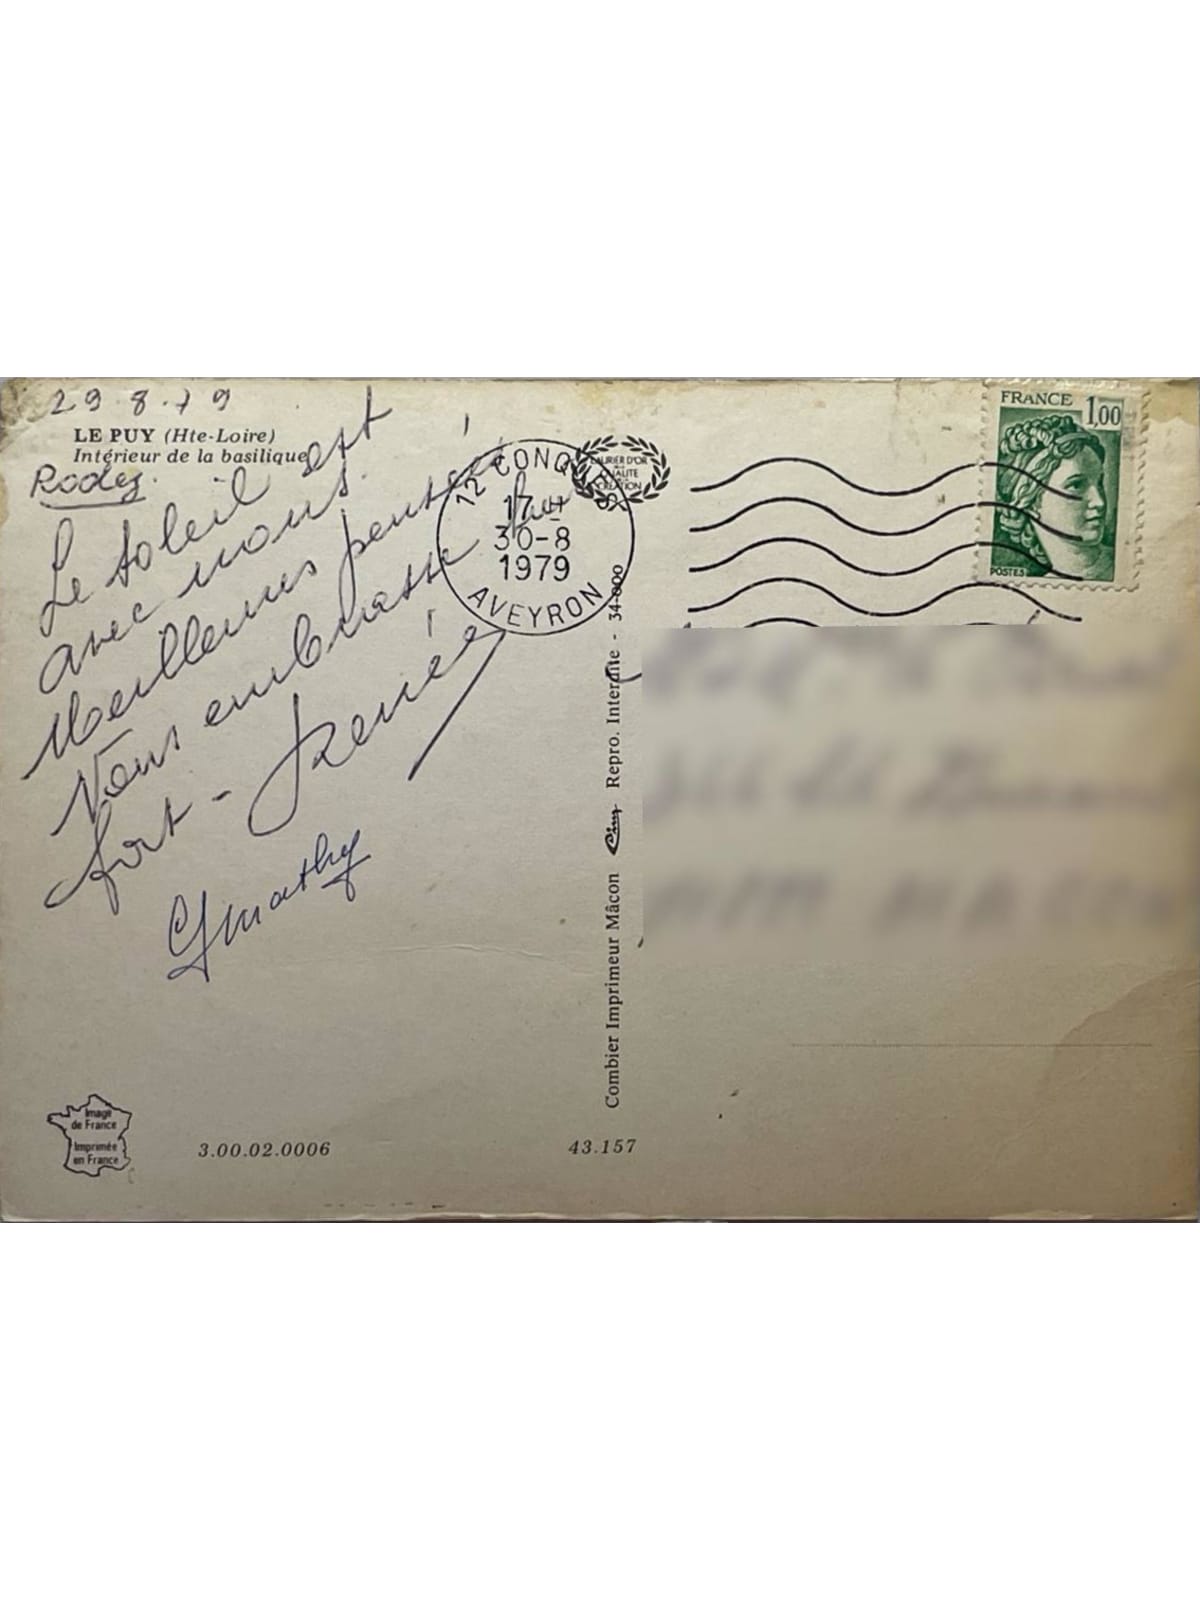 29.8.79
LE PUY (Hte-Loire)
Intérieur de la basilique
Rodez.
Le soleil est
avec nous.
Meilleures pensées
Vous embrasse
fort - Renée
Gmathy
12 CONQUES
17 H
30-8
1979
AVEYRON
LAURIER D'OR
QUALITE
CREATION
FRANCE 1,00
POSTES
Combier Imprimeur Mâcon Cim Repro. Interdite - 34-000
Image
de France
Imprimée
en France
3.00.02.0006
43.157